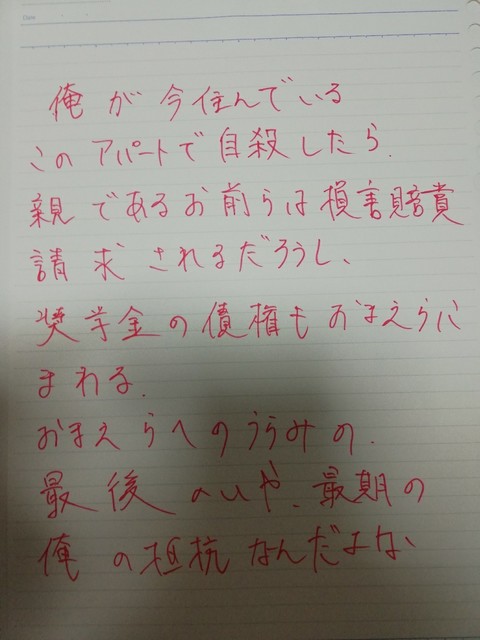 Date
俺が今住んでいる
このアパートで自殺したら.
親であるお前らは損害賠賞
請求されるだろうし、
奨学金の債権もおまえらに
まわる.
おまえらへのうらみの.
最後のいや、最期の
俺の抵抗なんだよな